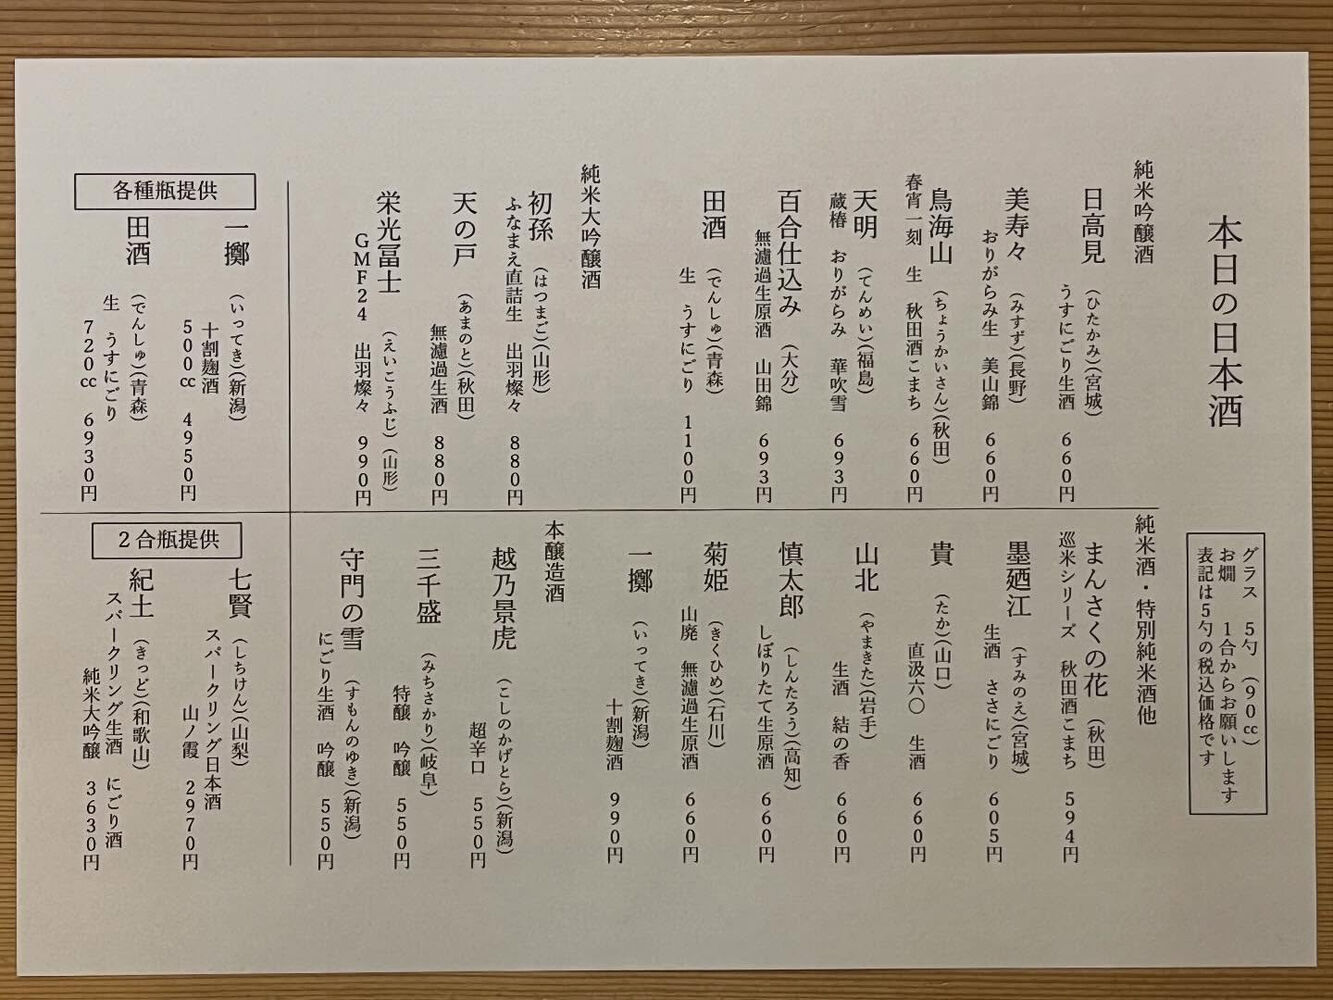 本日の日本酒
グラス　5勺　(90cc)
お燗　1合からお願いします
表記は5勺の税込価格です
純米吟醸酒
日高見　(ひたかみ)(宮城)
うすにごり生酒　660円
美寿々　(みすず)(長野)
おりがらみ生　美山錦　660円
鳥海山　(ちょうかいさん)(秋田)
春宵一刻　生　秋田酒こまち　660円
天明　(てんめい)(福島)
蔵椿　おりがらみ　華吹雪　693円
百合仕込み　(大分)
無濾過生原酒　山田錦　693円
田酒　(でんしゅ)(青森)
生　うすにごり　1100円
純米大吟醸酒
初孫　(はつまご)(山形)
ふなまえ直詰生　出羽燦々　880円
天の戸　(あまのと)(秋田)
無濾過生酒　880円
栄光冨士　(えいこうふじ)(山形)
GMF24　出羽燦々　990円
純米酒・特別純米酒他
まんさくの花　(秋田)
巡米シリーズ　秋田酒こまち　594円
墨廼江　(すみのえ)(宮城)
生酒　ささにごり　605円
貴　(たか)(山口)
直汲六〇　生酒　660円
山北　(やまきた)(岩手)
生酒　結の香　660円
慎太郎　(しんたろう)(高知)
しぼりたて生原酒　660円
菊姫　(きくひめ)(石川)
山廃　無濾過生原酒　660円
一擲　(いってき)(新潟)
十割麹酒　990円
本醸造酒
越乃景虎　(こしのかげとら)(新潟)
超辛口　550円
三千盛　(みちさかり)(岐阜)
特醸　吟醸　550円
守門の雪　(すもんのゆき)(新潟)
にごり生酒　吟醸　550円
各種瓶提供
一擲　(いってき)(新潟)
十割麹酒
500cc　4950円
田酒　(でんしゅ)(青森)
生　うすにごり
720cc　6930円
2合瓶提供
七賢　(しちけん)(山梨)
スパークリング日本酒
山ノ霞　2970円
紀土　(きっど)(和歌山)
スパークリング生酒　にごり酒
純米大吟醸　3630円